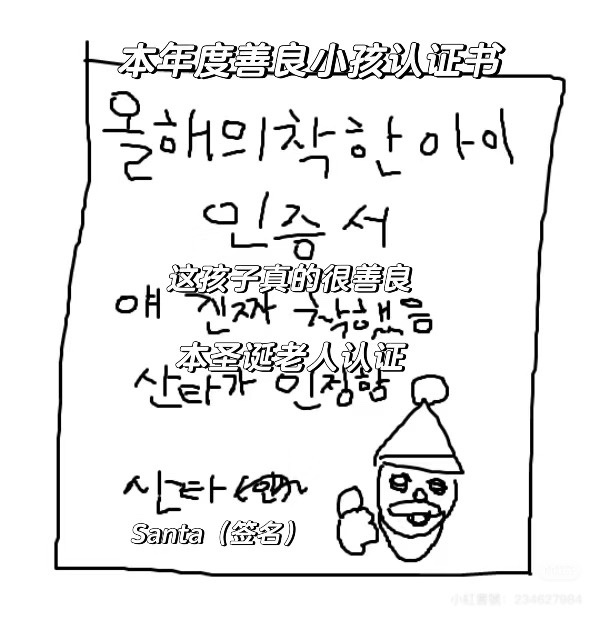 本年度善良小孩认证书
올해의 착한 아이
인증서
这孩子真的很善良
얘 진짜 착했음
本圣诞老人认证
산타가 인정함
산타
Santa（签名）
小红书号：234627984